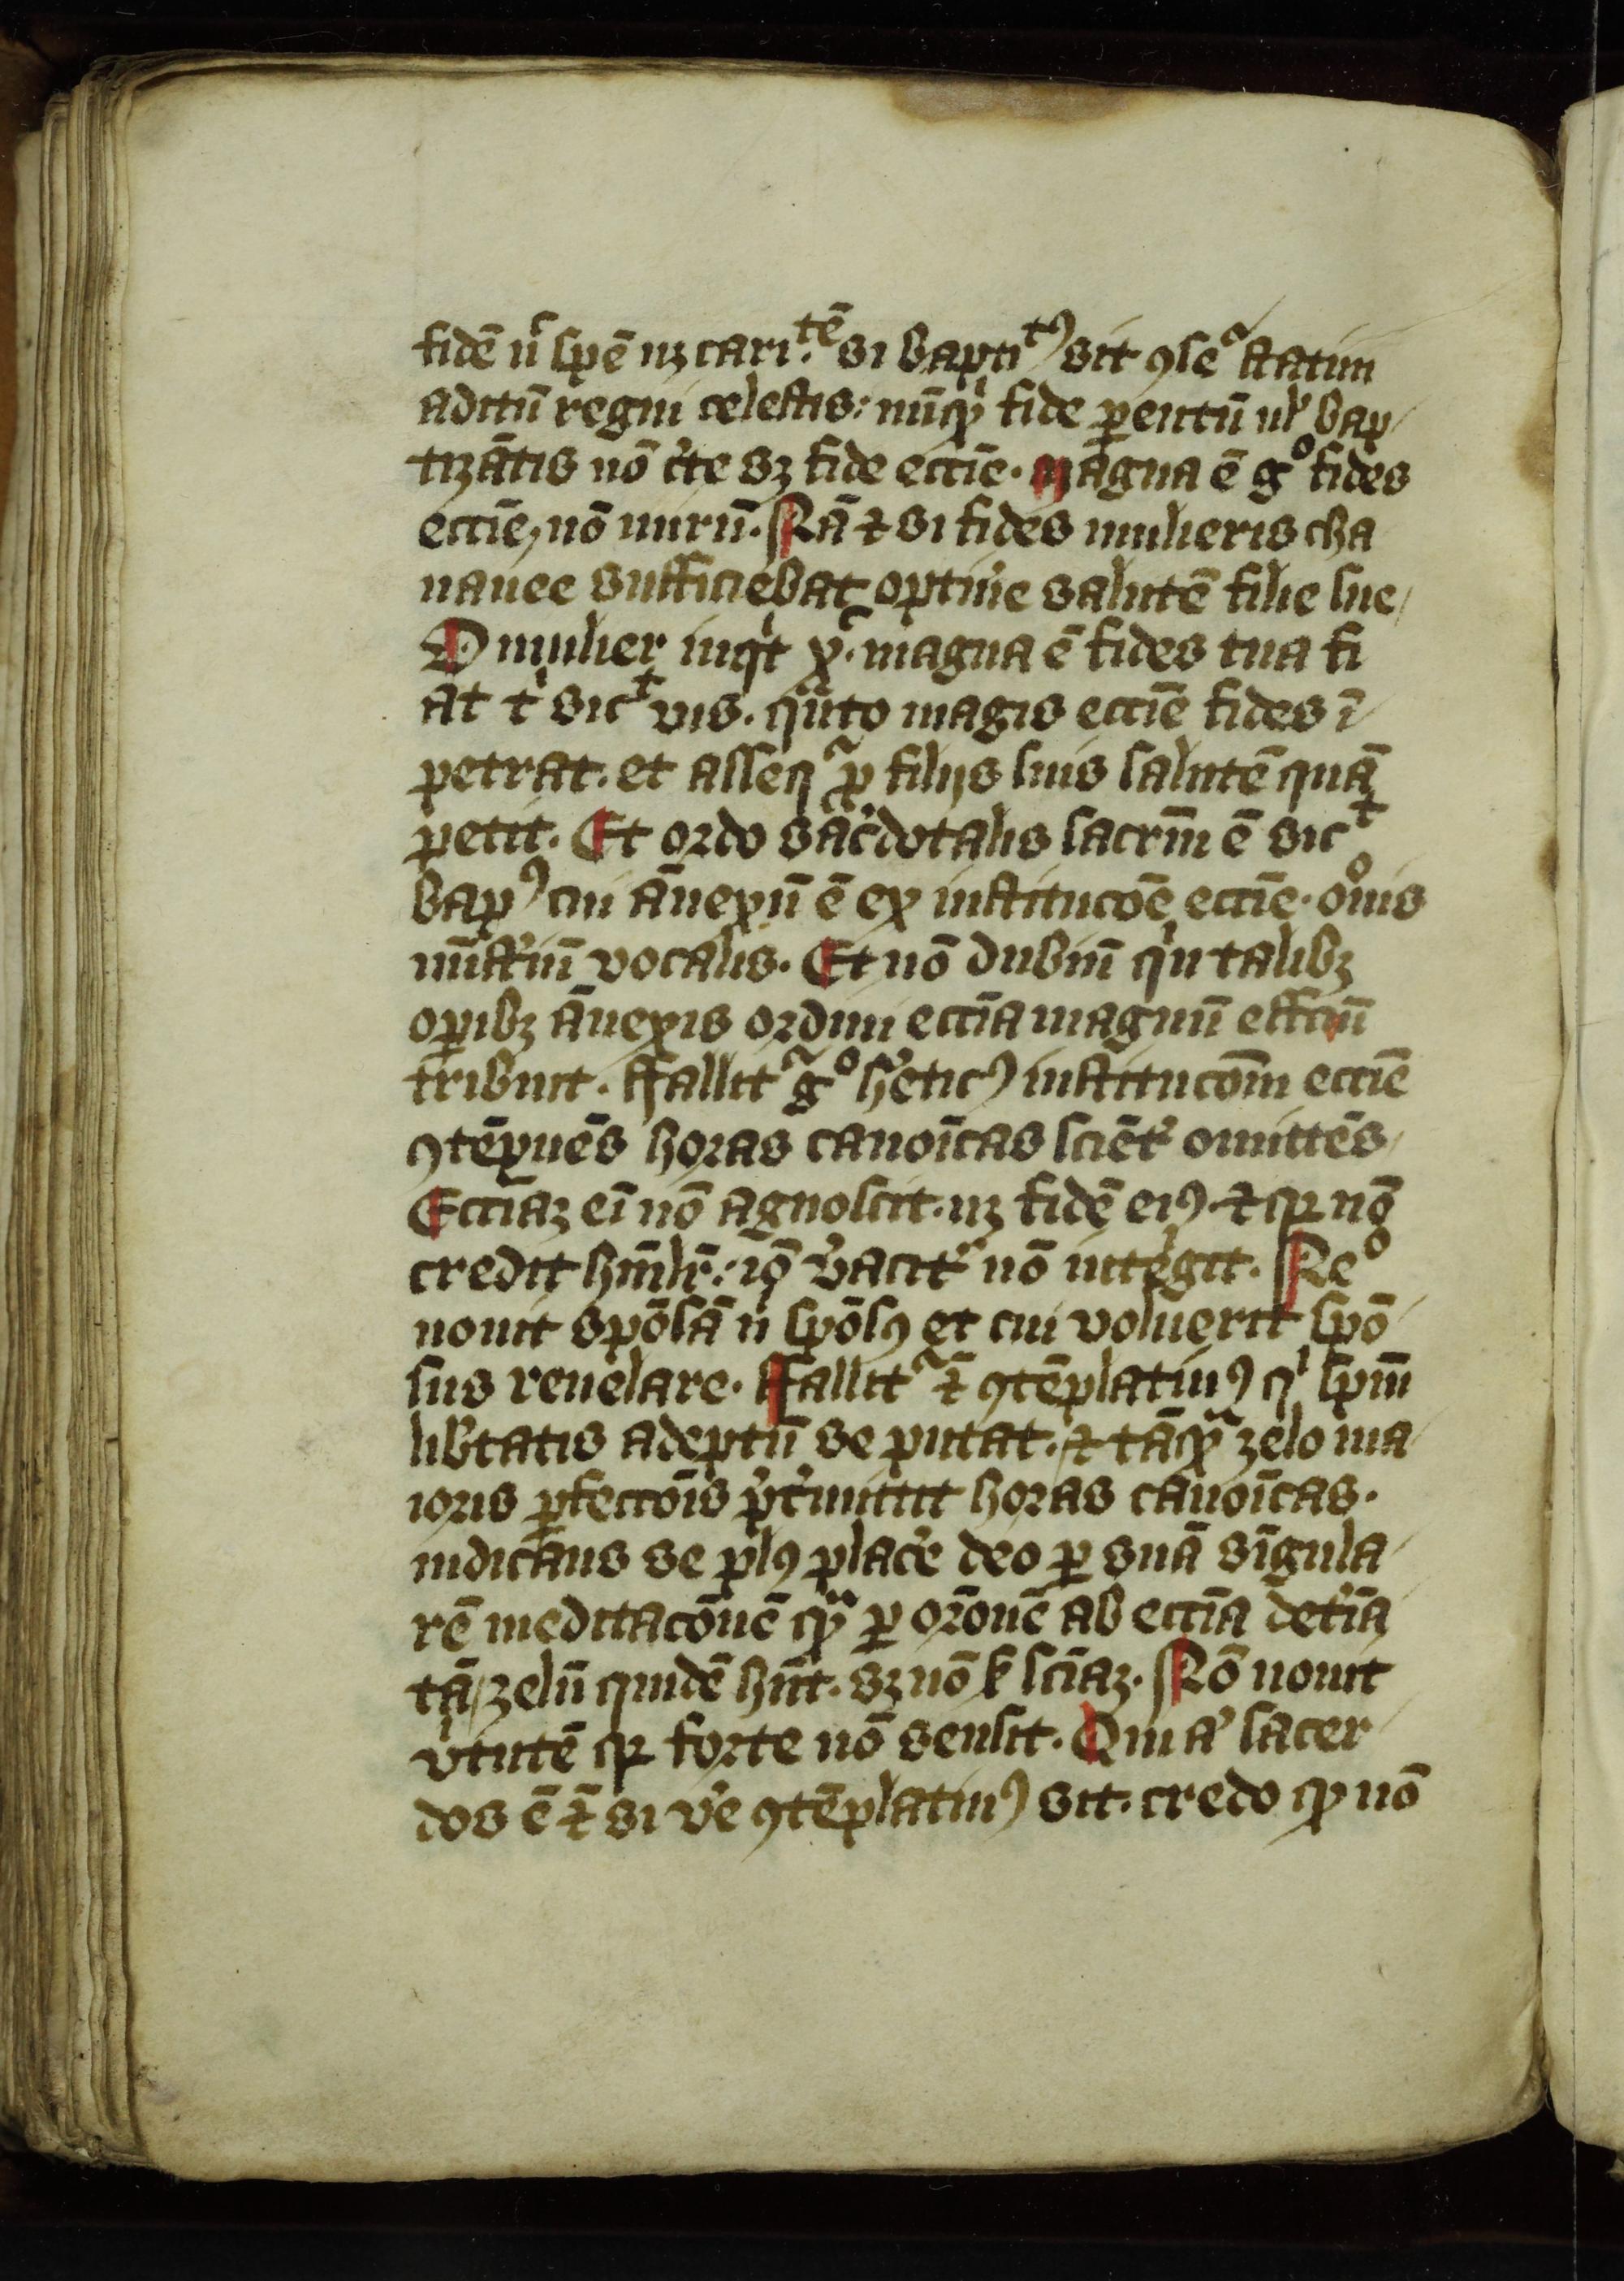 fidē nͨ spē nꝫ cari.tē si baptitꝰ sit ꝯseᵃ statim
aditū regni celestis: nūqͥd fide parentū ul' bap
tizātis nō c'te sꝫ fide eccīe. Magna ē gͦ fides
eccīe, nō mirū. Nā ⁊ si fides mulieris cha
nanee sufficiebat optin'e salutē filie sue,
O mulier inqͥt xͨ. magna ē fides tua fi
at tͥ sicᵗ vis. qᵃnto magis eccīe fides ī
petrat. et asseqᵃ ꝓ filijs suis salutē quā
petit. Et ordo sac'dotalis sacrm̄ ē sicᵗ
bapꝰ cui ānexū ē ex institucōe eccīe. oīuis
mīst'iū vocalis. Et nō dubiū qͥn talibꝫ
oꝑibꝫ ānexis ordini eccīa magnū effectū
tribuit. ffallitᵃ gͦ h'eticꝰ institucōm eccīe
ꝯtēpnēs horas canoīcas sciēt' omittēs,
Eccīaꝫ eī nō agnoscit. nꝫ fidē eiꝰ. ⁊ qꝛ nō
credit hūilr̄: iō v'acit' nō intelligit. Neͦ
nouit spōsā n̄ spōsꝰ et cui voluerit spō
sus reuelare. ffallitᵃ ⁊̄ ꝯtēplatiuꝰ qͥ spm̄
lib'tatis adeptū se putat. ⁊ tāqᵃꝫ zelo ma
ioris ꝑfectōis p't'mittit horas canoīcas.
iudicans se plꝰ plac'e deo ꝑ suā sīgula
rē meditacōnē qᵃꝫ ꝑ orōnē ab eccīa det'īa
tā, zelū quidē hn̄t. sꝫ nō k̄ scīaꝫ. Nō nouit
v'tutē qꝛ forte nō sensit. Qui a' sacer
dos ē ⁊̄ si v'e ꝯtēplatiuꝰ sit. credo ꝙ nō